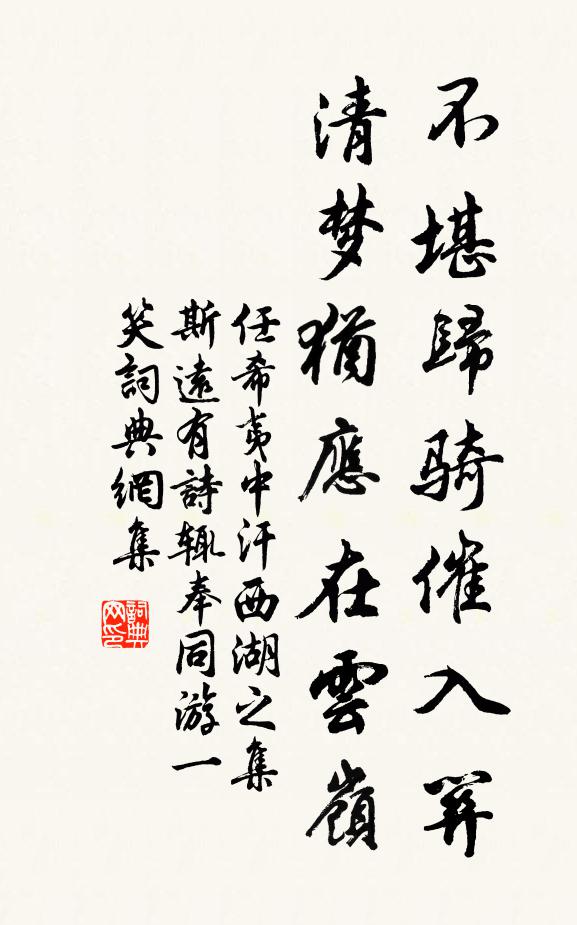 不堪歸騎催入
清梦猶應在雲嶺
任希夷中汗西湖之集
斯遠有詩輒奉同游一
笑詞典網集
詞典
网印